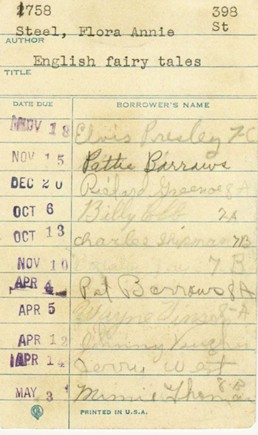 2758 398
Steel, Flora Annie St
AUTHOR
English fairy tales
TITLE
DATE DUE BORROWER'S NAME
NOV 18 Elvis Presley 7C
NOV 15 Pattie Barrows
DEC 20 Richard 8A
OCT 6 Billy 7A
OCT 13 Charles Shipman 7B
NOV 10 7 B
APR 4 Pat Barrows 8A
APR 5 Wayne
APR 12 Johnny
APR 14 Jerry West
MAY 3 Mimi Thomas
PRINTED IN U.S.A.